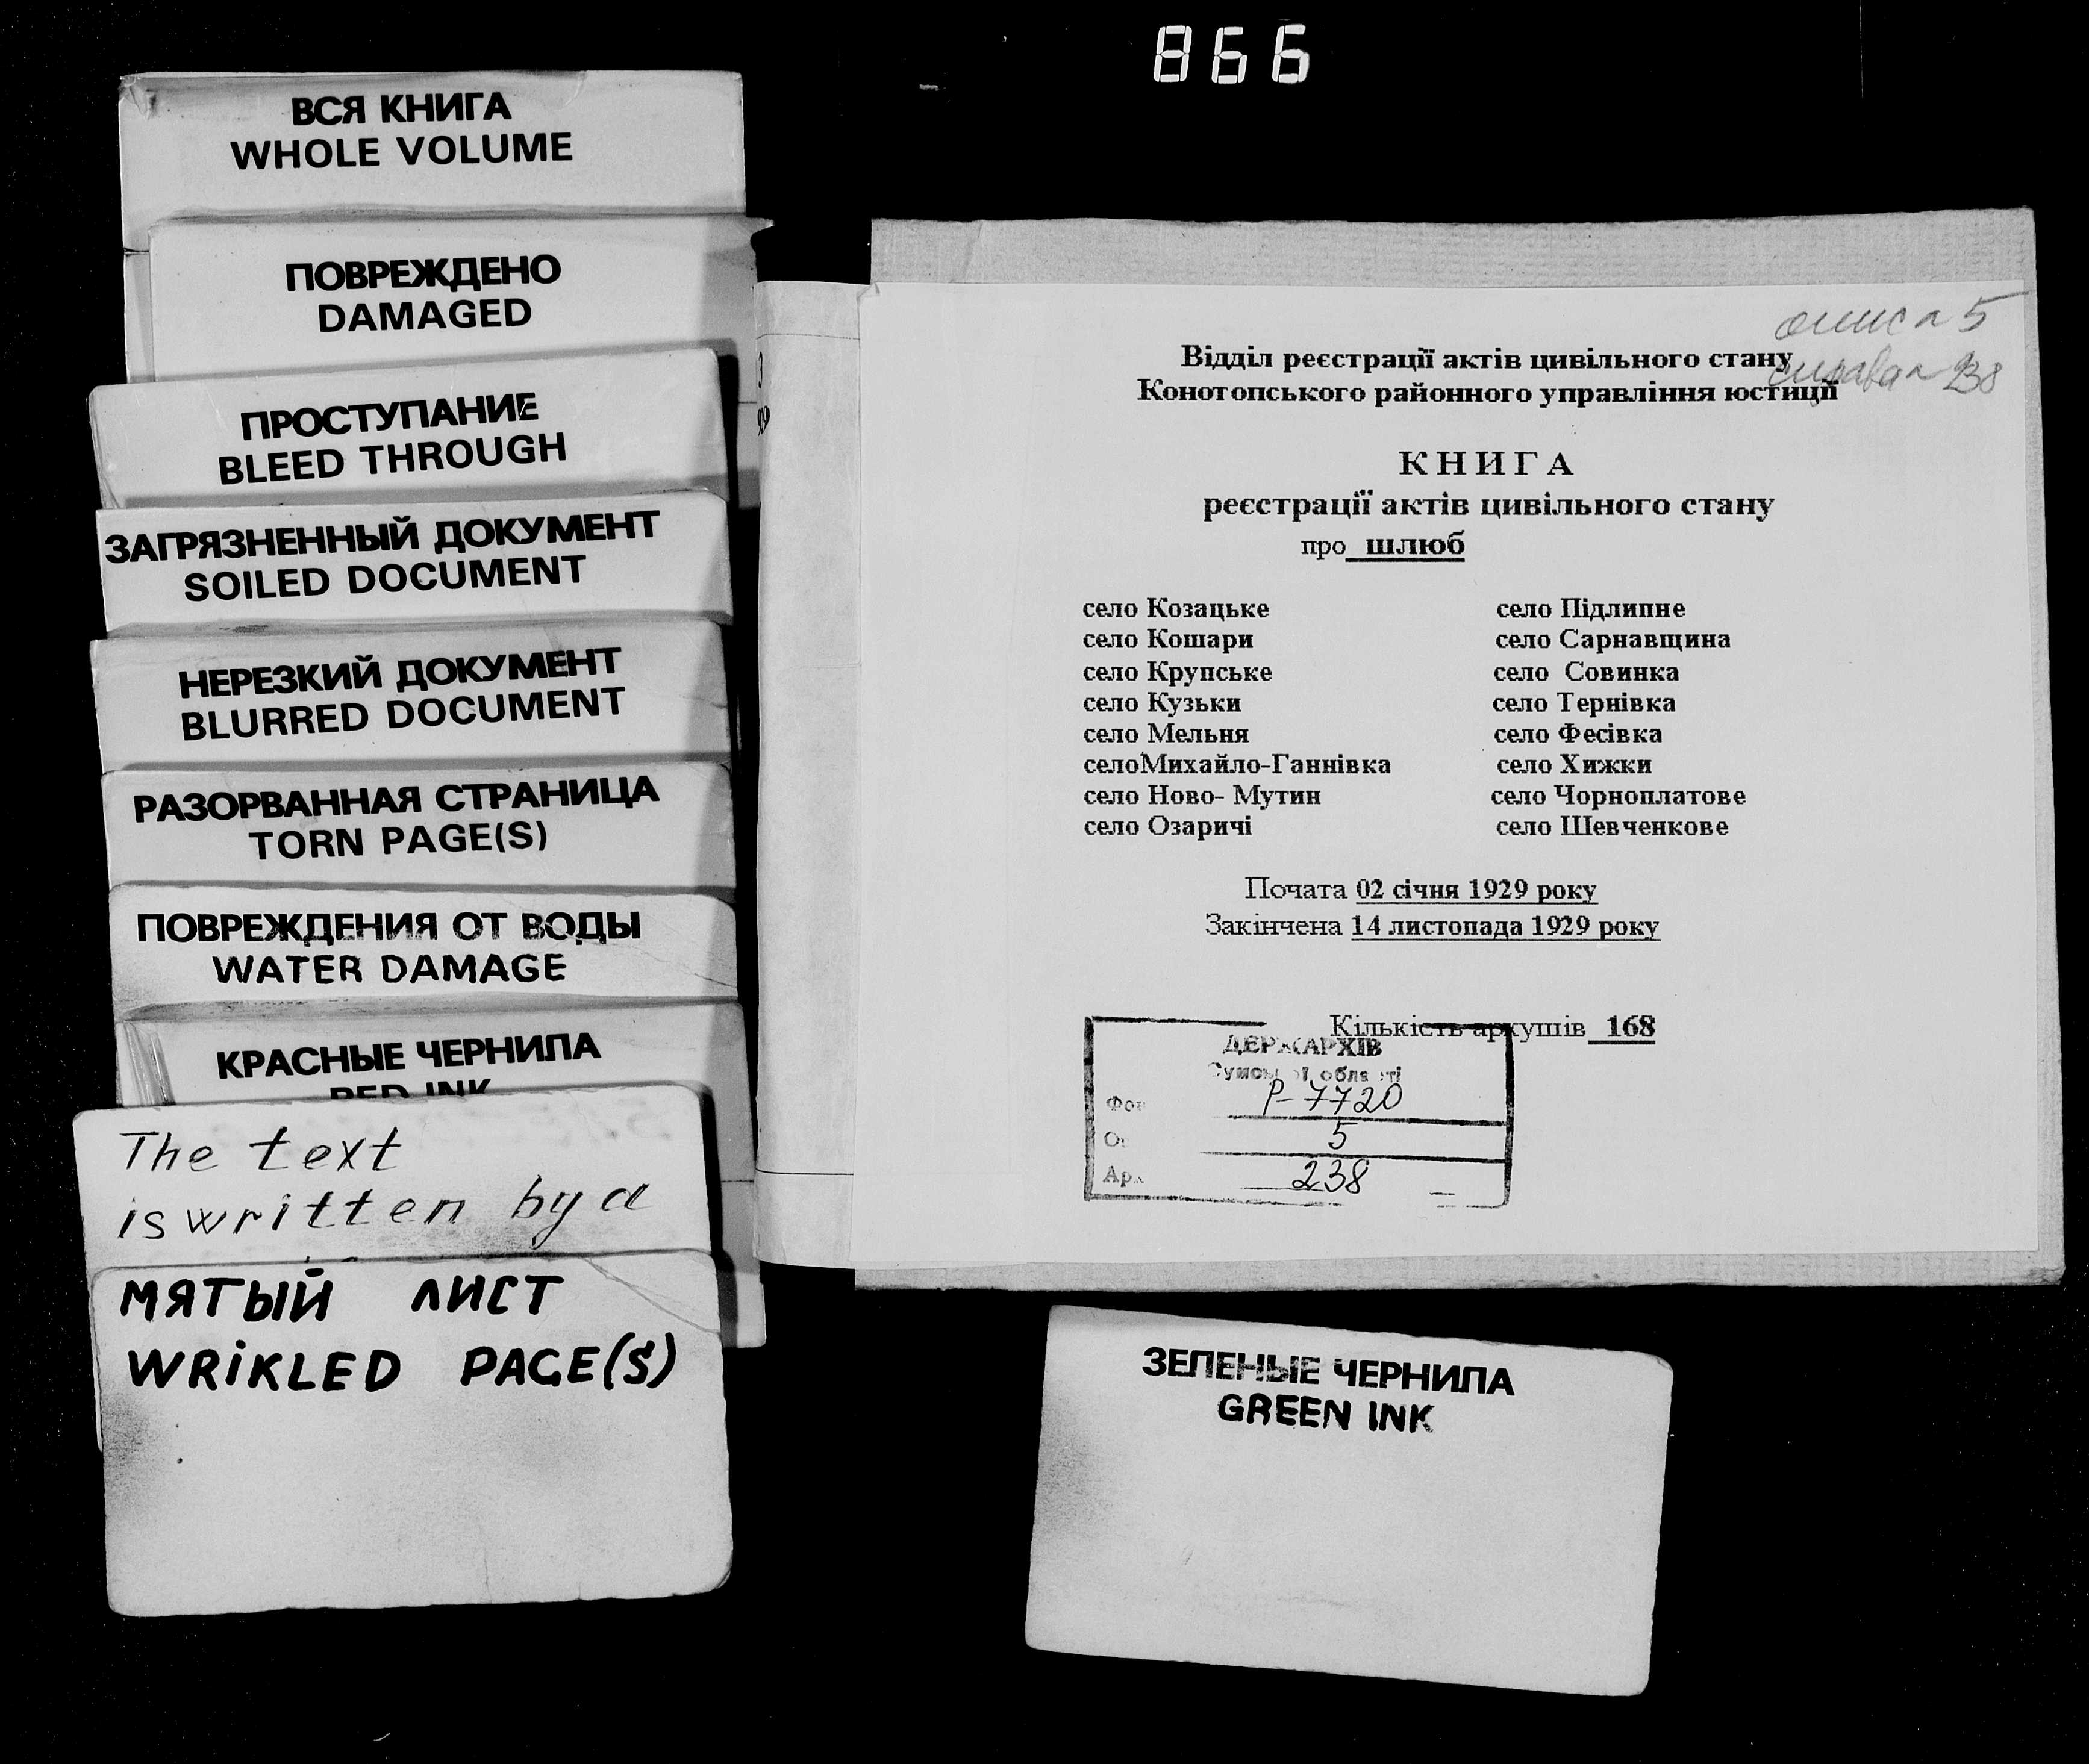 866
ВСЯ КНИГА
WHOLE VOLUME
ПОВРЕЖДЕНО
DAMAGED
ПРОСТУПАНИЕ
BLEED THROUGH
ЗАГРЯЗНЕННЫЙ ДОКУМЕНТ
SOILED DOCUMENT
НЕРЕЗКИЙ ДОКУМЕНТ
BLURRED DOCUMENT
РАЗОРВАННАЯ СТРАНИЦА
TORN PAGE(S)
ПОВРЕЖДЕНИЯ ОТ ВОДЫ
WATER DAMAGE
КРАСНЫЕ ЧЕРНИЛА
RED INK
The text
is written by a
МЯТЫЙ ЛИСТ
WRIKLED PAGE(S)
опис 5
справа 238
Відділ реєстрації актів цивільного стану
Конотопського районного управління юстиції
КНИГА
реєстрації актів цивільного стану
про шлюб
село Козацьке
село Кошари
село Крупське
село Кузьки
село Мельня
селоМихайло-Ганнівка
село Ново- Мутин
село Озаричі
село Підлипне
село Сарнавщина
село Совинка
село Тернівка
село Фесівка
село Хижки
село Чорноплатове
село Шевченкове
Почата 02 січня 1929 року
Закінчена 14 листопада 1929 року
Кількість аркушів 168
ДЕРЖАРХІВ
Сумської області
Р-7720
5
238
ЗЕЛЕНЫЕ ЧЕРНИЛА
GREEN INK